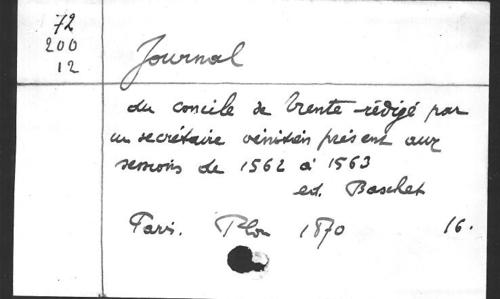 72
200
12
Journal
du concile de Trente rédigé par
un secrétaire vénitien présent aux
sessions de 1562 à 1563
ed. Baschet
Paris. Plon 1870 16.